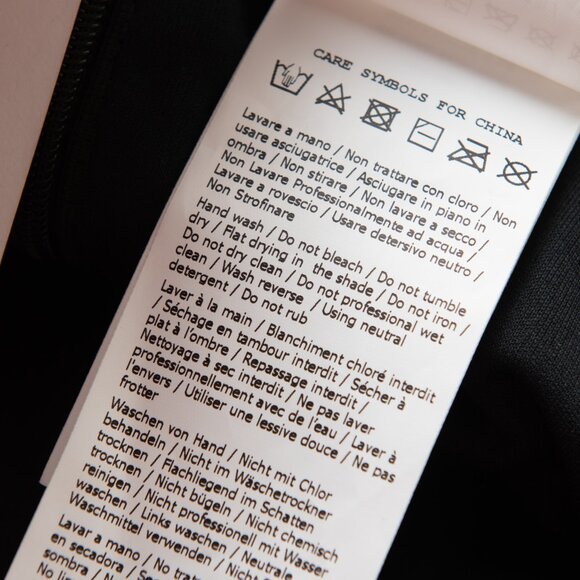 CARE SYMBOLS FOR CHINA
Lavare a mano / Non trattare con cloro / Non
usare asciugatrice / Asciugare in piano in
ombra / Non stirare / Non lavare a secco /
Non Lavare Professionalmente ad acqua /
Lavare a rovescio / Usare detersivo neutro /
Non Strofinare
Hand wash / Do not bleach / Do not tumble
dry / Flat drying in the shade / Do not iron /
Do not dry clean / Do not professional wet
clean / Wash reverse / Using neutral
detergent / Do not rub
Laver à la main / Blanchiment chloré interdit
/ Séchage en tambour interdit / Sécher à
plat à l'ombre / Repassage interdit /
Nettoyage à sec interdit / Ne pas laver
professionnellement avec de l'eau / Laver à
l'envers / Utiliser une lessive douce / Ne pas
frotter
Waschen von Hand / Nicht mit Chlor
behandeln / Nicht im Wäschetrockner
trocknen / Flachliegend im Schatten
trocknen / Nicht bügeln / Nicht chemisch
reinigen / Nicht professionell mit Wasser
waschen / Links waschen / Neutrale
Waschmittel verwenden / Nicht
Lavar a mano / No
en secadora /
sombra /